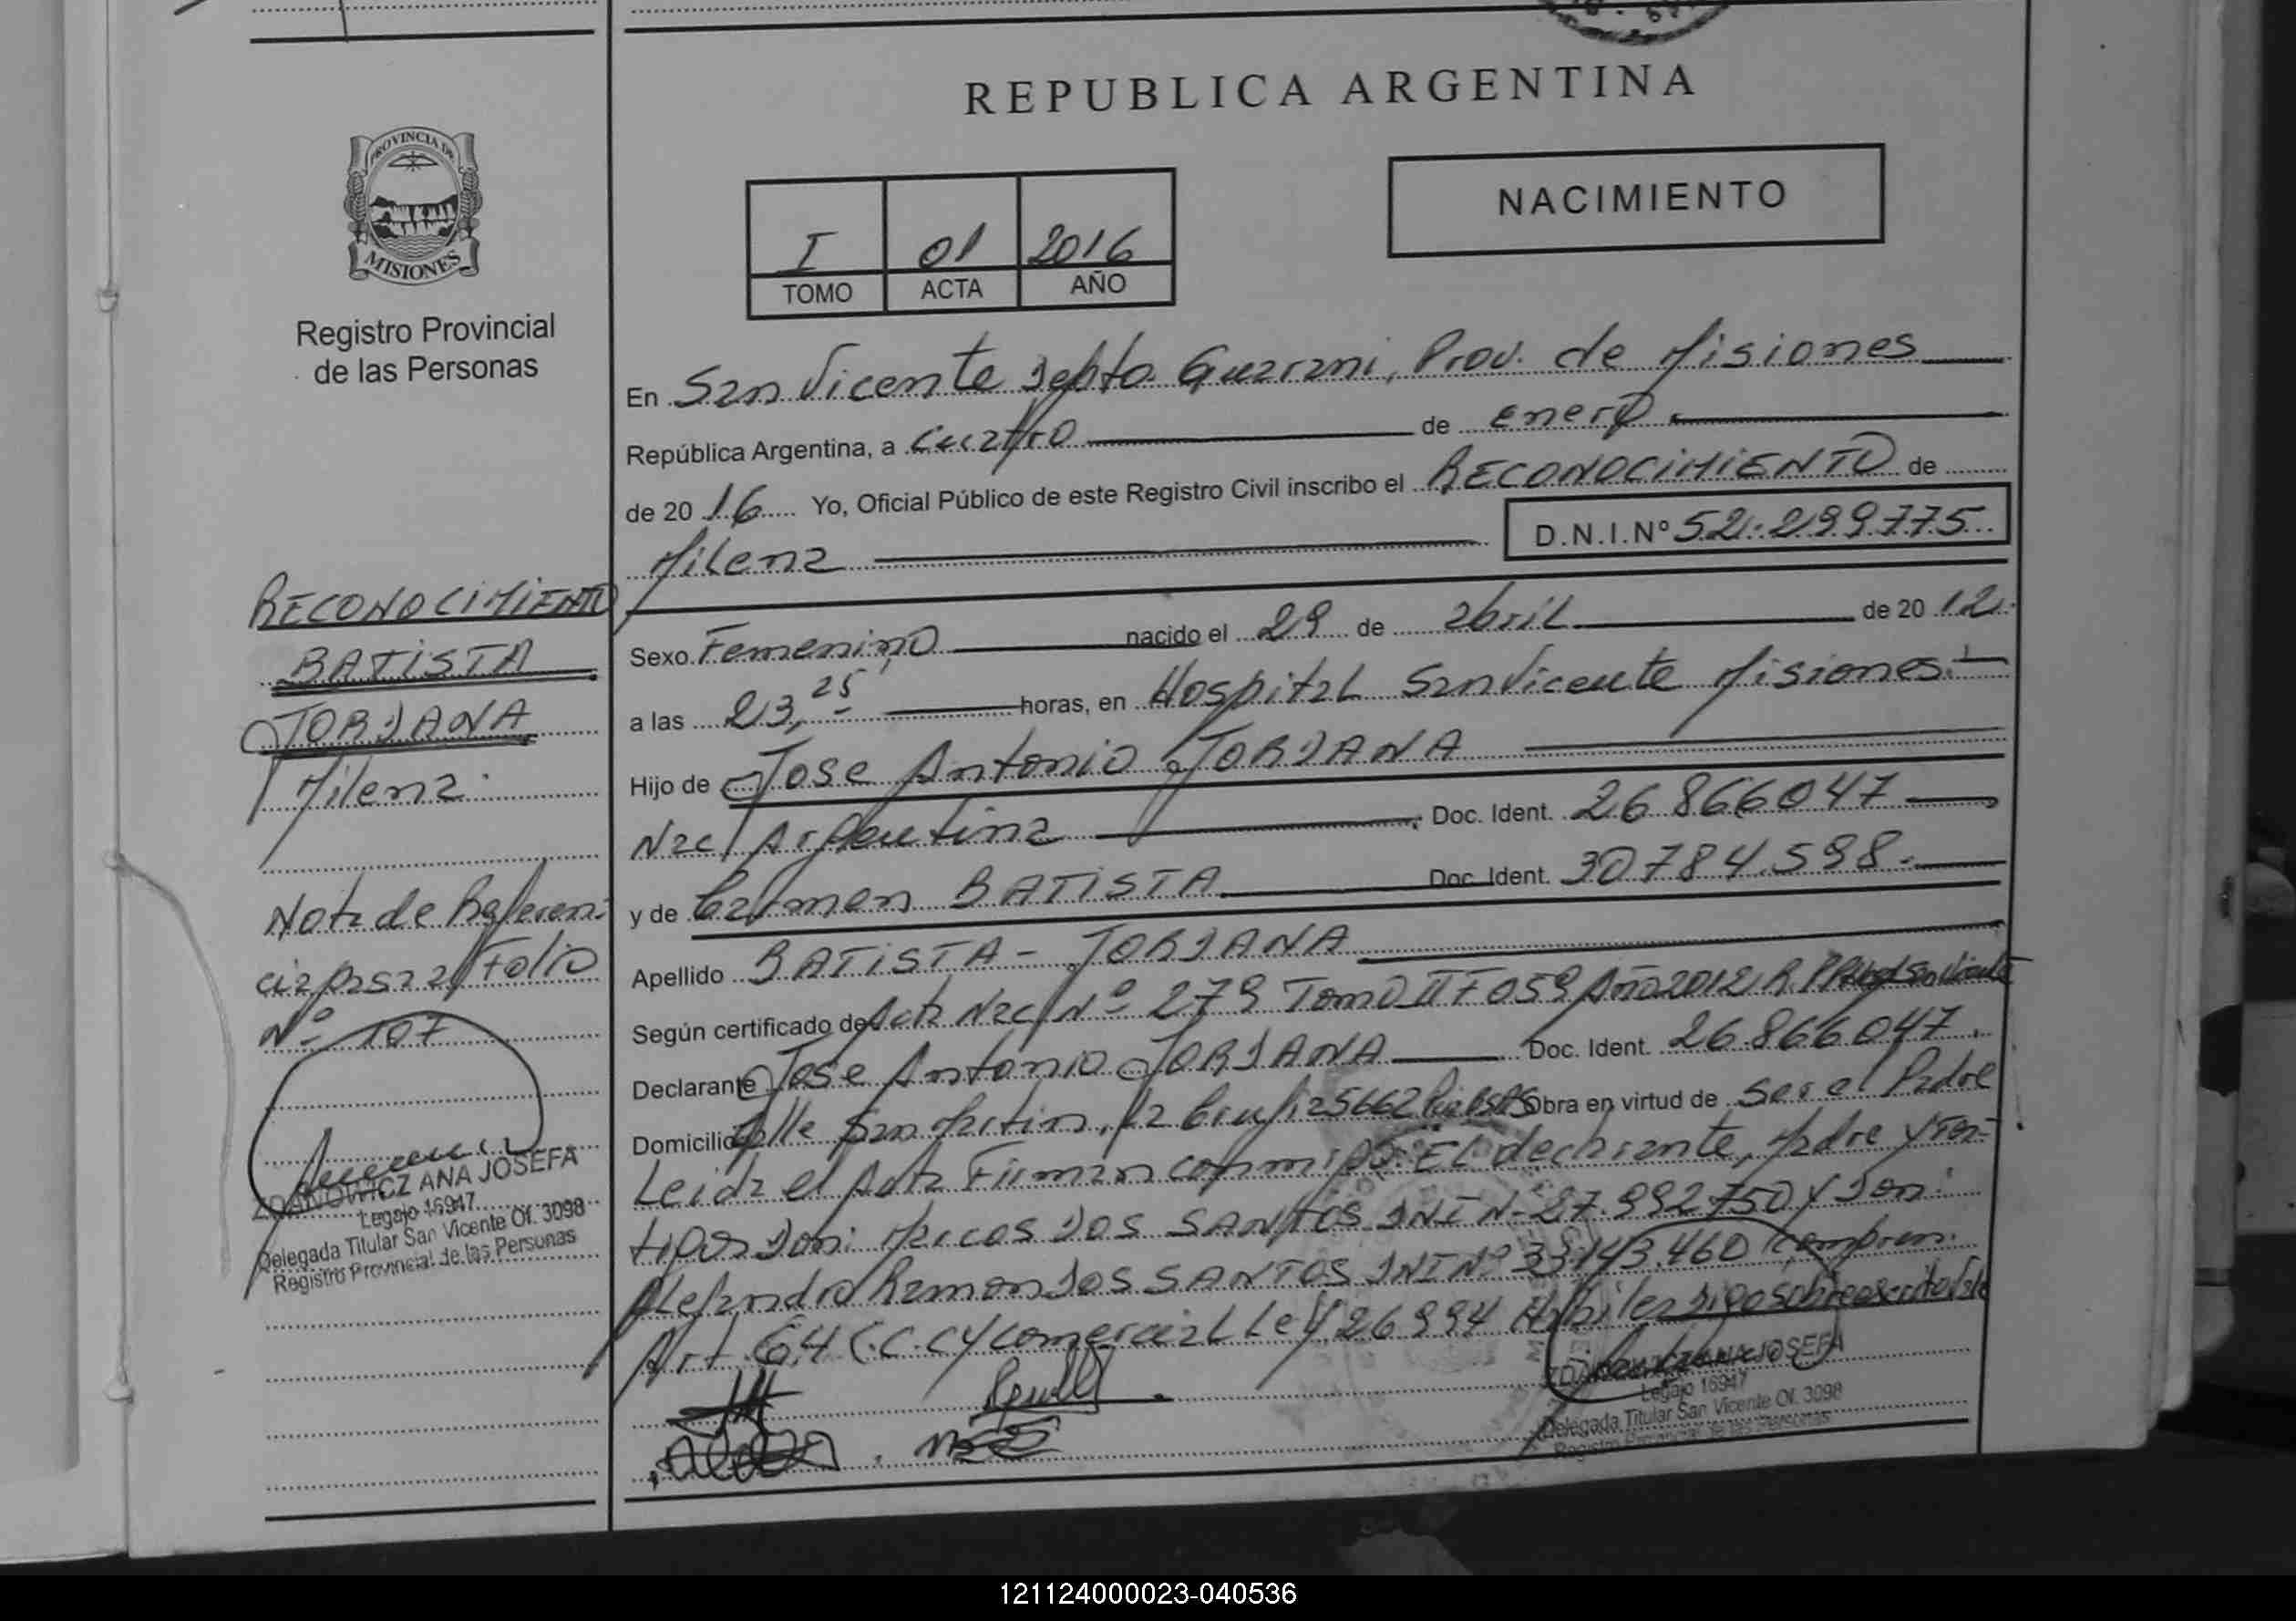 REPUBLICA ARGENTINA
NACIMIENTO
I 01 2016
TOMO ACTA AÑO
PROVINCIA DE
MISIONES
Registro Provincial
de las Personas
En San Vicente Depto. Guarani, Prov. de Misiones
República Argentina, a Cuatro de enero
de 20 16 Yo, Oficial Público de este Registro Civil inscribo el RECONOCIMIENTO de
Milena D.N.I.Nº 52.299.775
Sexo Femenino nacido el 29 de abril de 20 12
a las 23,25 horas, en Hospital San Vicente Misiones
Hijo de Jose Antonio JORDANA
Nac/ Argentina Doc. Ident. 26.866047
y de Carmen BATISTA Doc. Ident. 30784.598
Apellido BATISTA - JORDANA
Según certificado de Acta Nac/ Nº 279 Tomo II F 059 Año 2012 R.P.P.
Declarante Jose Antonio JORDANA Doc. Ident. 26.866047
Domicilio Calle San Martin, Obra en virtud de Ser el Padre
Leida el Acta Firman conmigo: El declarante, Madre y Tes-
tigos Don: Marcos DOS SANTOS DNI Nº 27.992.750 y Don:
Alejandro Ramon DOS SANTOS DNI Nº 33143.460
Art. 64 C.C.C y Comercial Ley 26994
RECONOCIMIENTO
BATISTA
JORDANA
Milena
Nota de Referen-
cia pasa al Folio
Nº 107
ZDANOWICZ ANA JOSEFA
Legajo 16947
Delegada Titular San Vicente Of. 3098
Registro Provincial de las Personas
ZDANOWICZ ANA JOSEFA
Legajo 16947
Delegada Titular San Vicente Of. 3098
Registro Provincial de las Personas
121124000023-040536